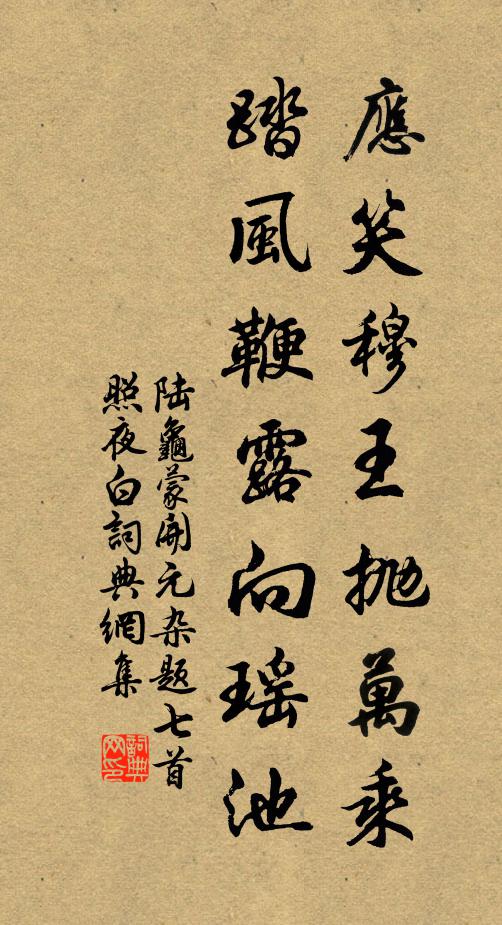 應笑穆王抛萬乘
踏風鞭露向瑶池
陆龜蒙開元杂題七首
照夜白詞典網集
詞典网印